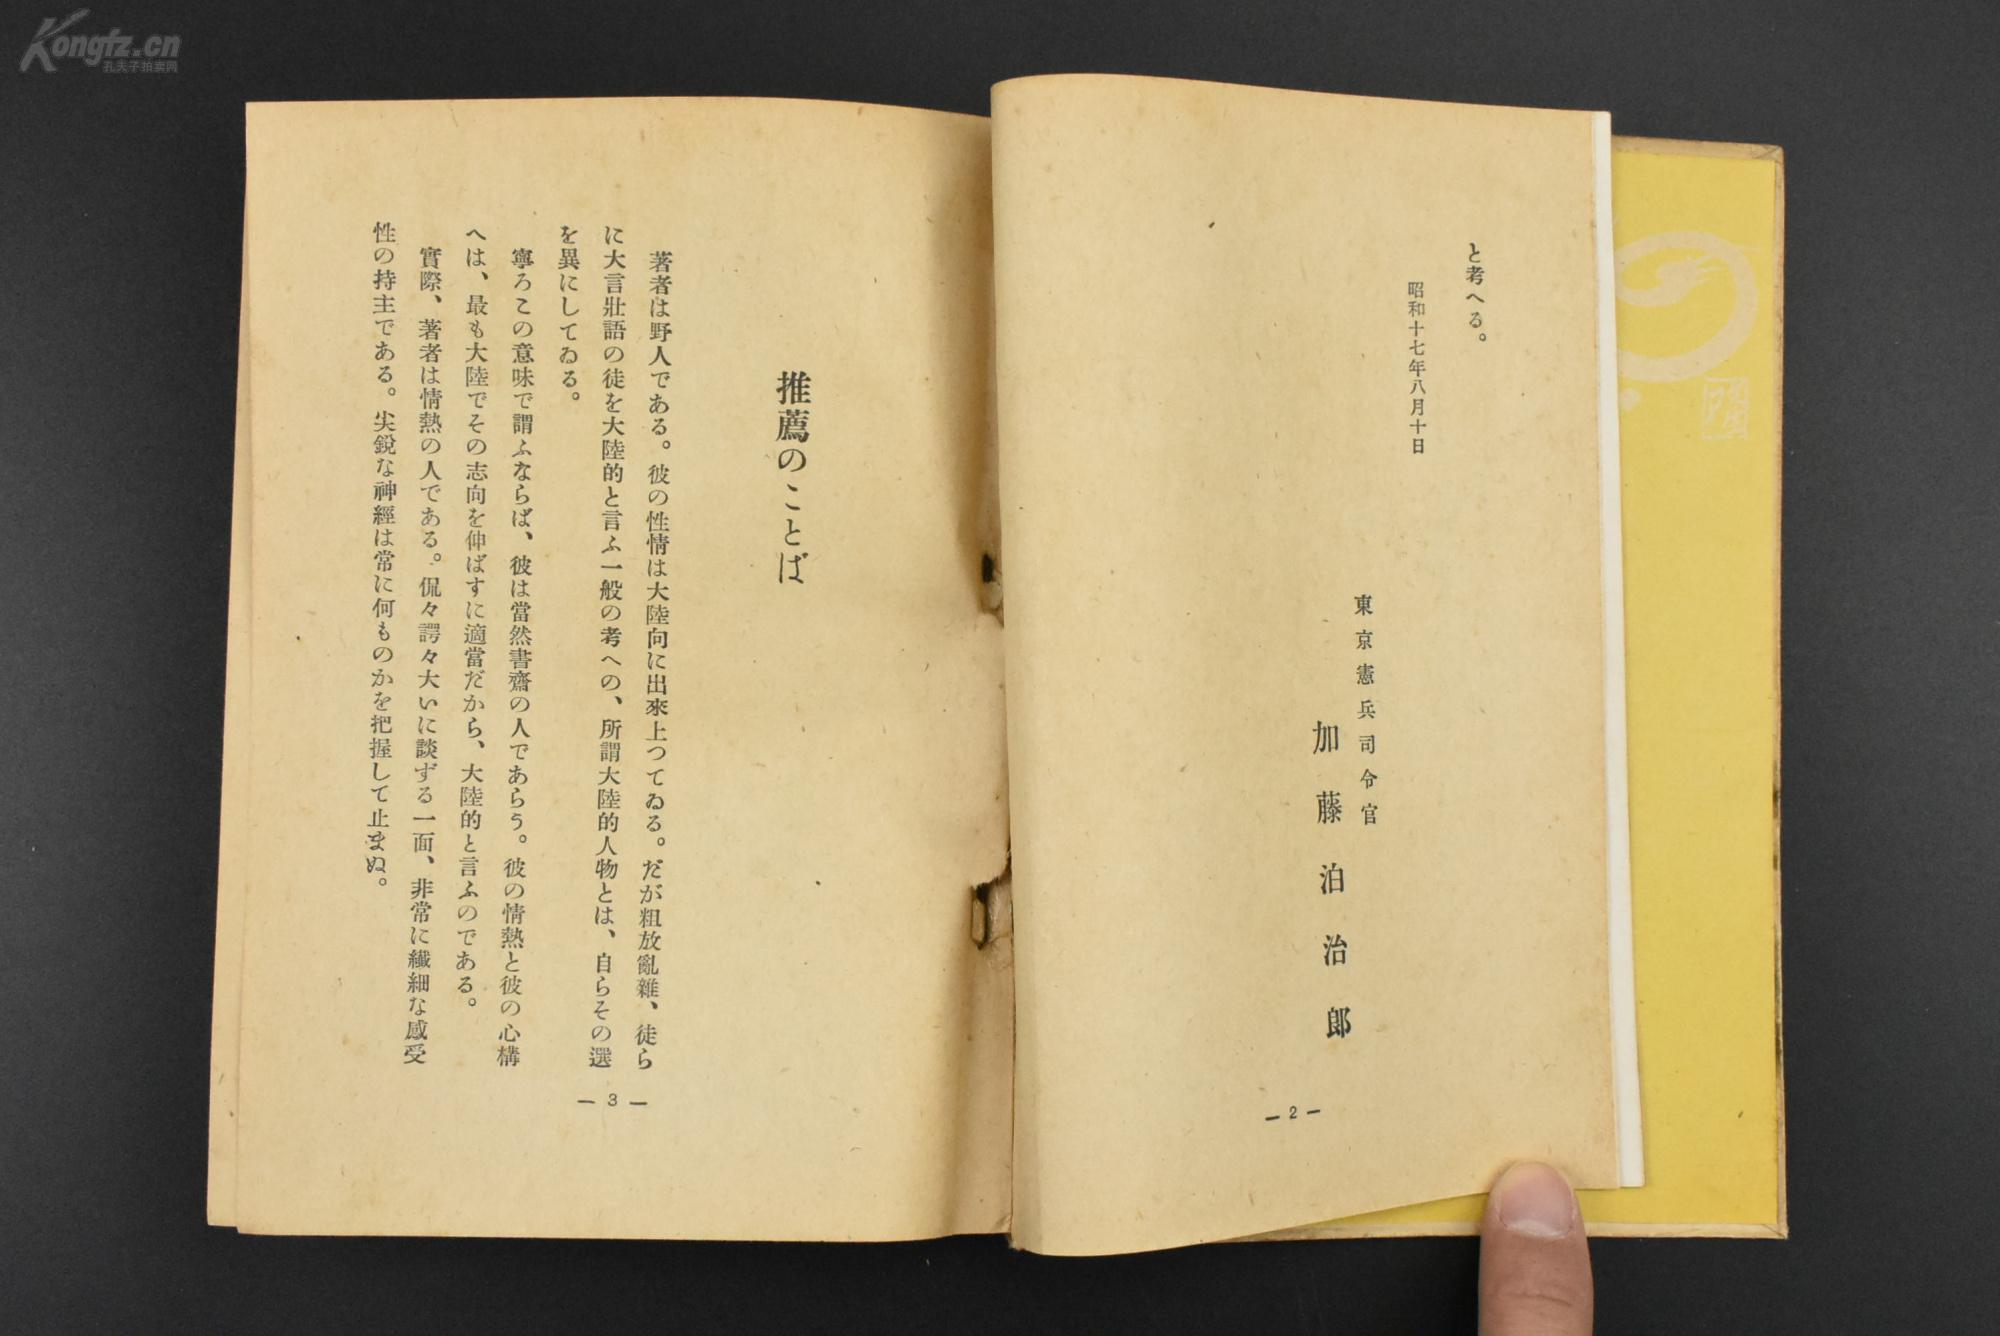 Kongfz.cn
孔夫子拍卖网
と考へる。
昭和十七年八月十日
東京憲兵司令官
加藤泊治郎
— 2 —
推薦のことば
著者は野人である。彼の性情は大陸向に出來上つてゐる。だが粗放亂雜、徒ら
に大言壯語の徒を大陸的と言ふ一般の考への、所謂大陸的人物とは、自らその選
を異にしてゐる。
寧ろこの意味で謂ふならば、彼は當然書齋の人であらう。彼の情熱と彼の心構
へは、最も大陸でその志向を伸ばすに適當だから、大陸的と言ふのである。
實際、著者は情熱の人である。侃々諤々大いに談ずる一面、非常に纖細な感受
性の持主である。尖鋭な神經は常に何ものかを把握して止まぬ。
— 3 —